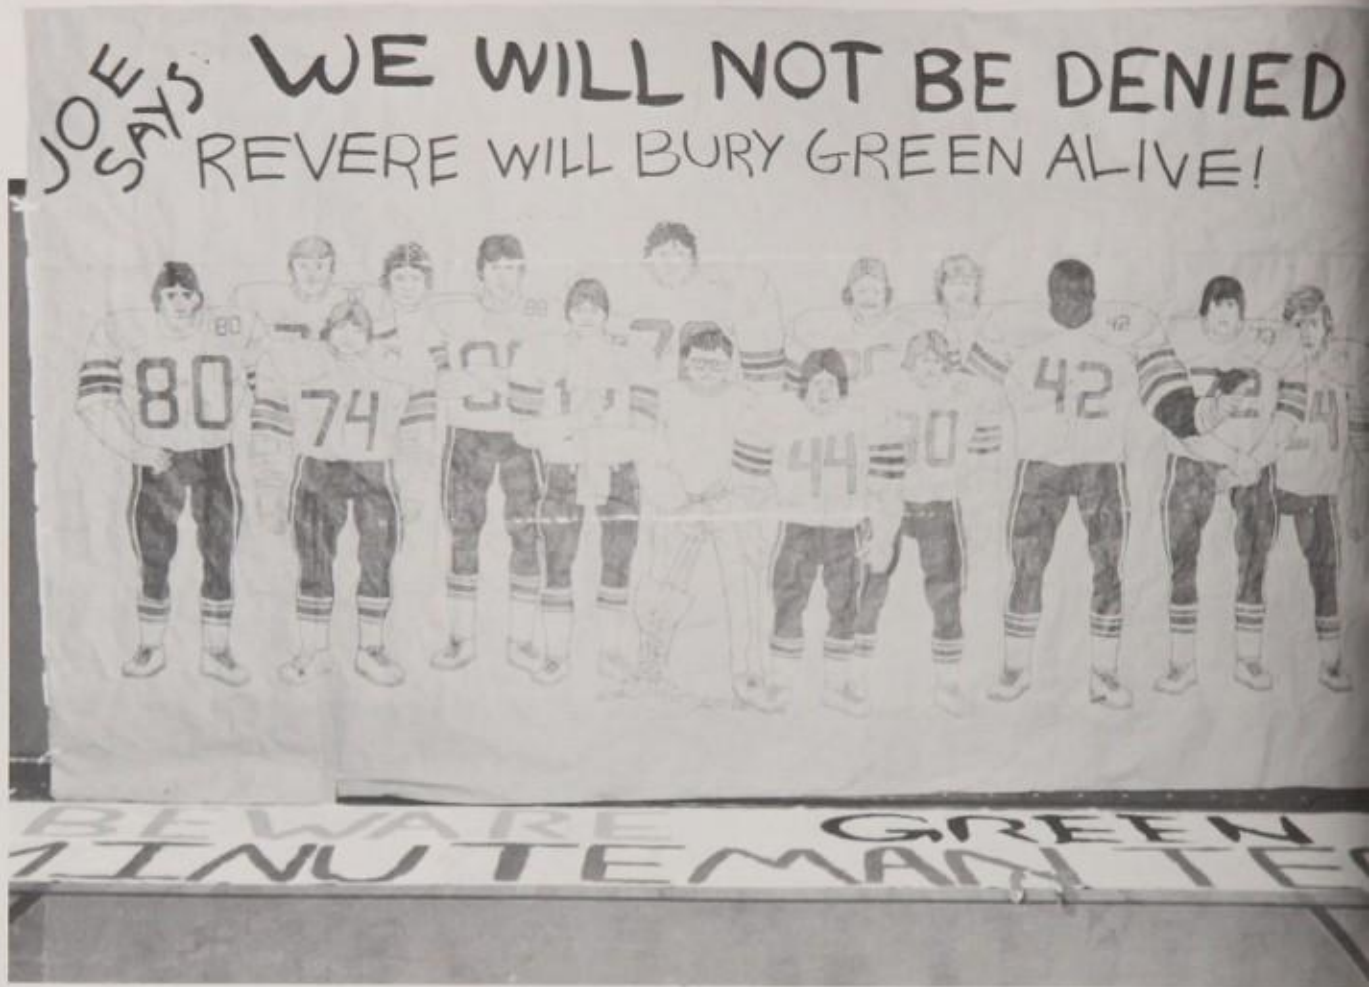 JOE
SAYS
WE WILL NOT BE DENIED
REVERE WILL BURY GREEN ALIVE!
80
80
74
44
42
42
BEWARE GREEN
MINUTEMAN